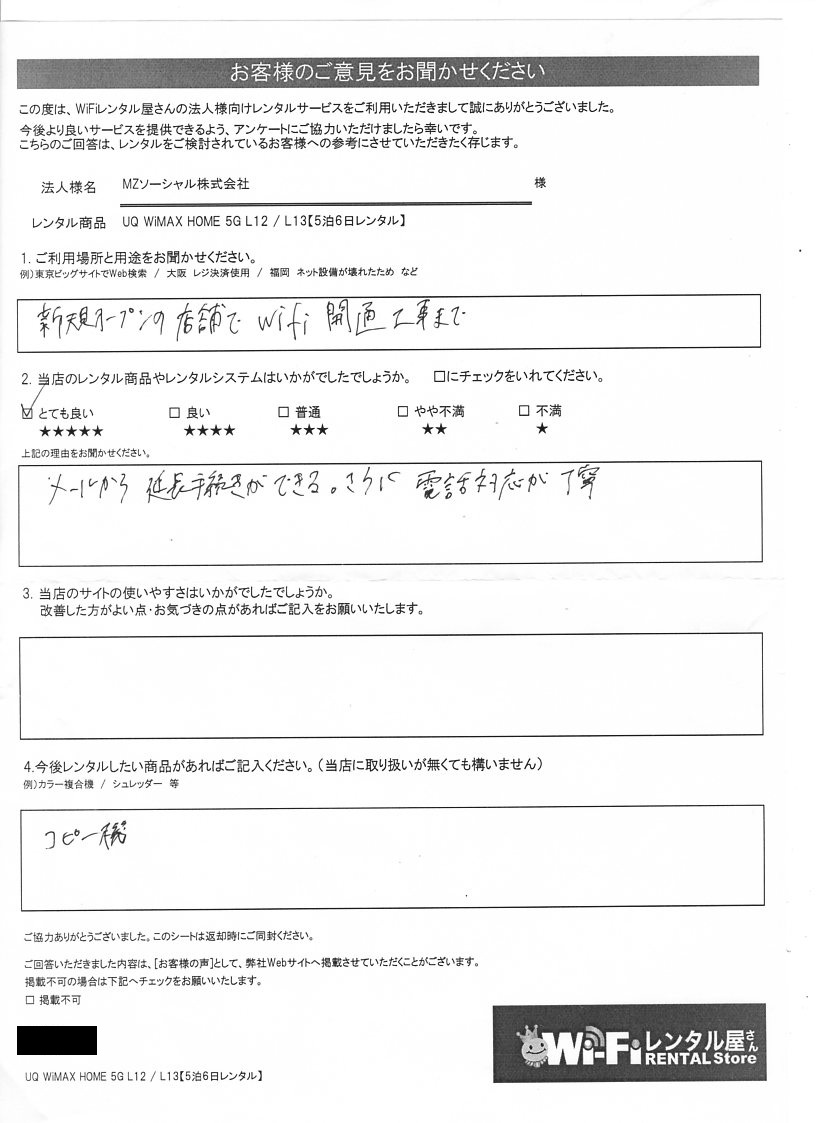 お客様のご意見をお聞かせください
この度は、WiFiレンタル屋さんの法人様向けレンタルサービスをご利用いただきまして誠にありがとうございました。
今後より良いサービスを提供できるよう、アンケートにご協力いただけましたら幸いです。
こちらのご回答は、レンタルをご検討されているお客様への参考にさせていただきたく存じます。
法人様名 MZソーシャル株式会社 様
レンタル商品 UQ WiMAX HOME 5G L12 / L13【5泊6日レンタル】
1. ご利用場所と用途をお聞かせください。
例)東京ビッグサイトでWeb検索 / 大阪 レジ決済使用 / 福岡 ネット設備が壊れたため など
新規オープンの店舗で wifi 開通工事まで
2. 当店のレンタル商品やレンタルシステムはいかがでしたでしょうか。 □にチェックをいれてください。
☑ とても良い □ 良い □ 普通 □ やや不満 □ 不満
★★★★★ ★★★★ ★★★ ★★ ★
上記の理由をお聞かせください。
メールから 延長手続きができる。さらに 電話対応が丁寧
3. 当店のサイトの使いやすさはいかがでしたでしょうか。
改善した方がよい点・お気づきの点があればご記入をお願いいたします。
4.今後レンタルしたい商品があればご記入ください。(当店に取り扱いが無くても構いません)
例)カラー複合機 / シュレッダー 等
コピー機
ご協力ありがとうございました。このシートは返却時にご同封ください。
ご回答いただきました内容は、[お客様の声]として、弊社Webサイトへ掲載させていただくことがございます。
掲載不可の場合は下記へチェックをお願いいたします。
□ 掲載不可
Wi-Fiレンタル屋さん
RENTAL Store
UQ WiMAX HOME 5G L12 / L13【5泊6日レンタル】